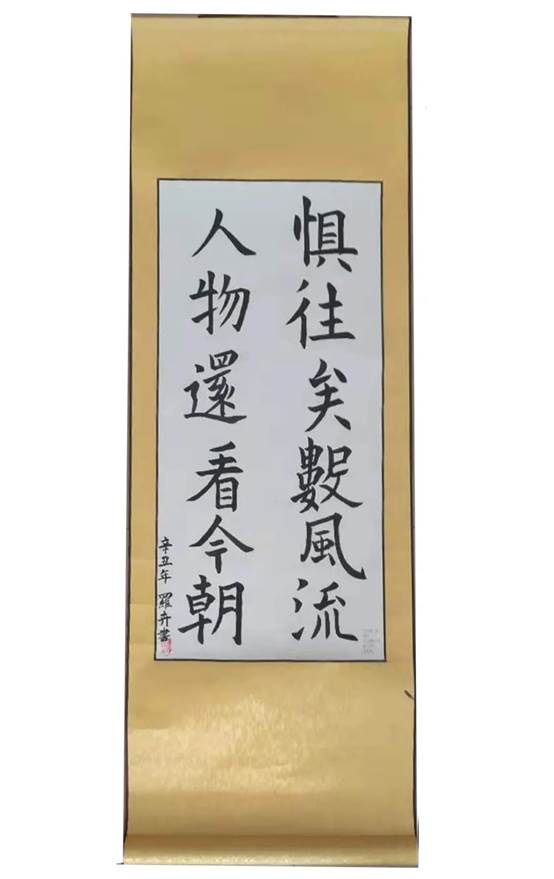 惧往矣數風流
人物還看今朝
辛丑年 羅卉書